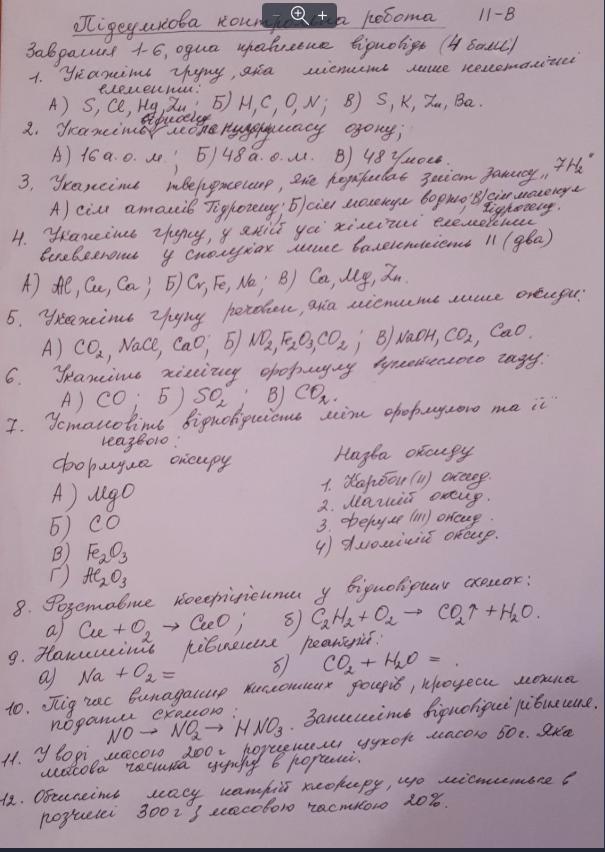 Підсумкова контрольна робота II-В
Завдання 1-6, одна правильна відповідь (4 бали)
1. Укажіть групу, яка містить лише неметалічні
елементи:
А) S, Cl, Hg, Zn; Б) H, C, O, N; В) S, K, Zn, Ba.
відносну
2. Укажіть масу озону;
А) 16 а.о.м.; Б) 48 а.о.м. В) 48 г/моль.
3. Укажіть твердження, яке розкриває зміст запису „7H₂"
А) сім атомів Гідрогену; Б) сім молекул водню; В) сім молекул
Гідрогену.
4. Укажіть групу, у якій усі хімічні елементи
виявляють у сполуках лише валентність II (два)
А) Al, Cu, Ca; Б) Cr, Fe, Na; В) Ca, Mg, Zn.
5. Укажіть групу речовин, яка містить лише оксиди:
А) CO₂, NaCl, CaO; Б) NO₂, Fe₂O₃, CO₂; В) NaOH, CO₂, CaO.
6 Укажіть хімічну формулу вуглекислого газу:
А) CO; Б) SO₂; В) CO₂.
7. Установіть відповідність між формулою та її
назвою:
Формула оксиду Назва оксиду
А) MgO 1. Карбон (II) оксид.
Б) CO 2. Магній оксид.
В) Fe₂O₃ 3. Ферум (III) оксид.
Г) Al₂O₃ 4) Алюміній оксид.
8. Розставте коефіцієнти у відповідних схемах:
а) Cu + O₂ → CuO; б) C₂H₂ + O₂ → CO₂↑ + H₂O.
9. Напишіть рівняння реакцій:
а) Na + O₂ = б) CO₂ + H₂O = .
10. Під час випадання кислотних дощів, процеси можна
подати схемою:
NO → NO₂ → HNO₃. Запишіть відповідні рівняння.
11. У воді масою 200 г розчинили цукор масою 50 г. Яка
масова частка цукру в розчині.
12. Обчисліть масу натрій хлориду, що міститься в
розчині 300 г з масовою часткою 20%.